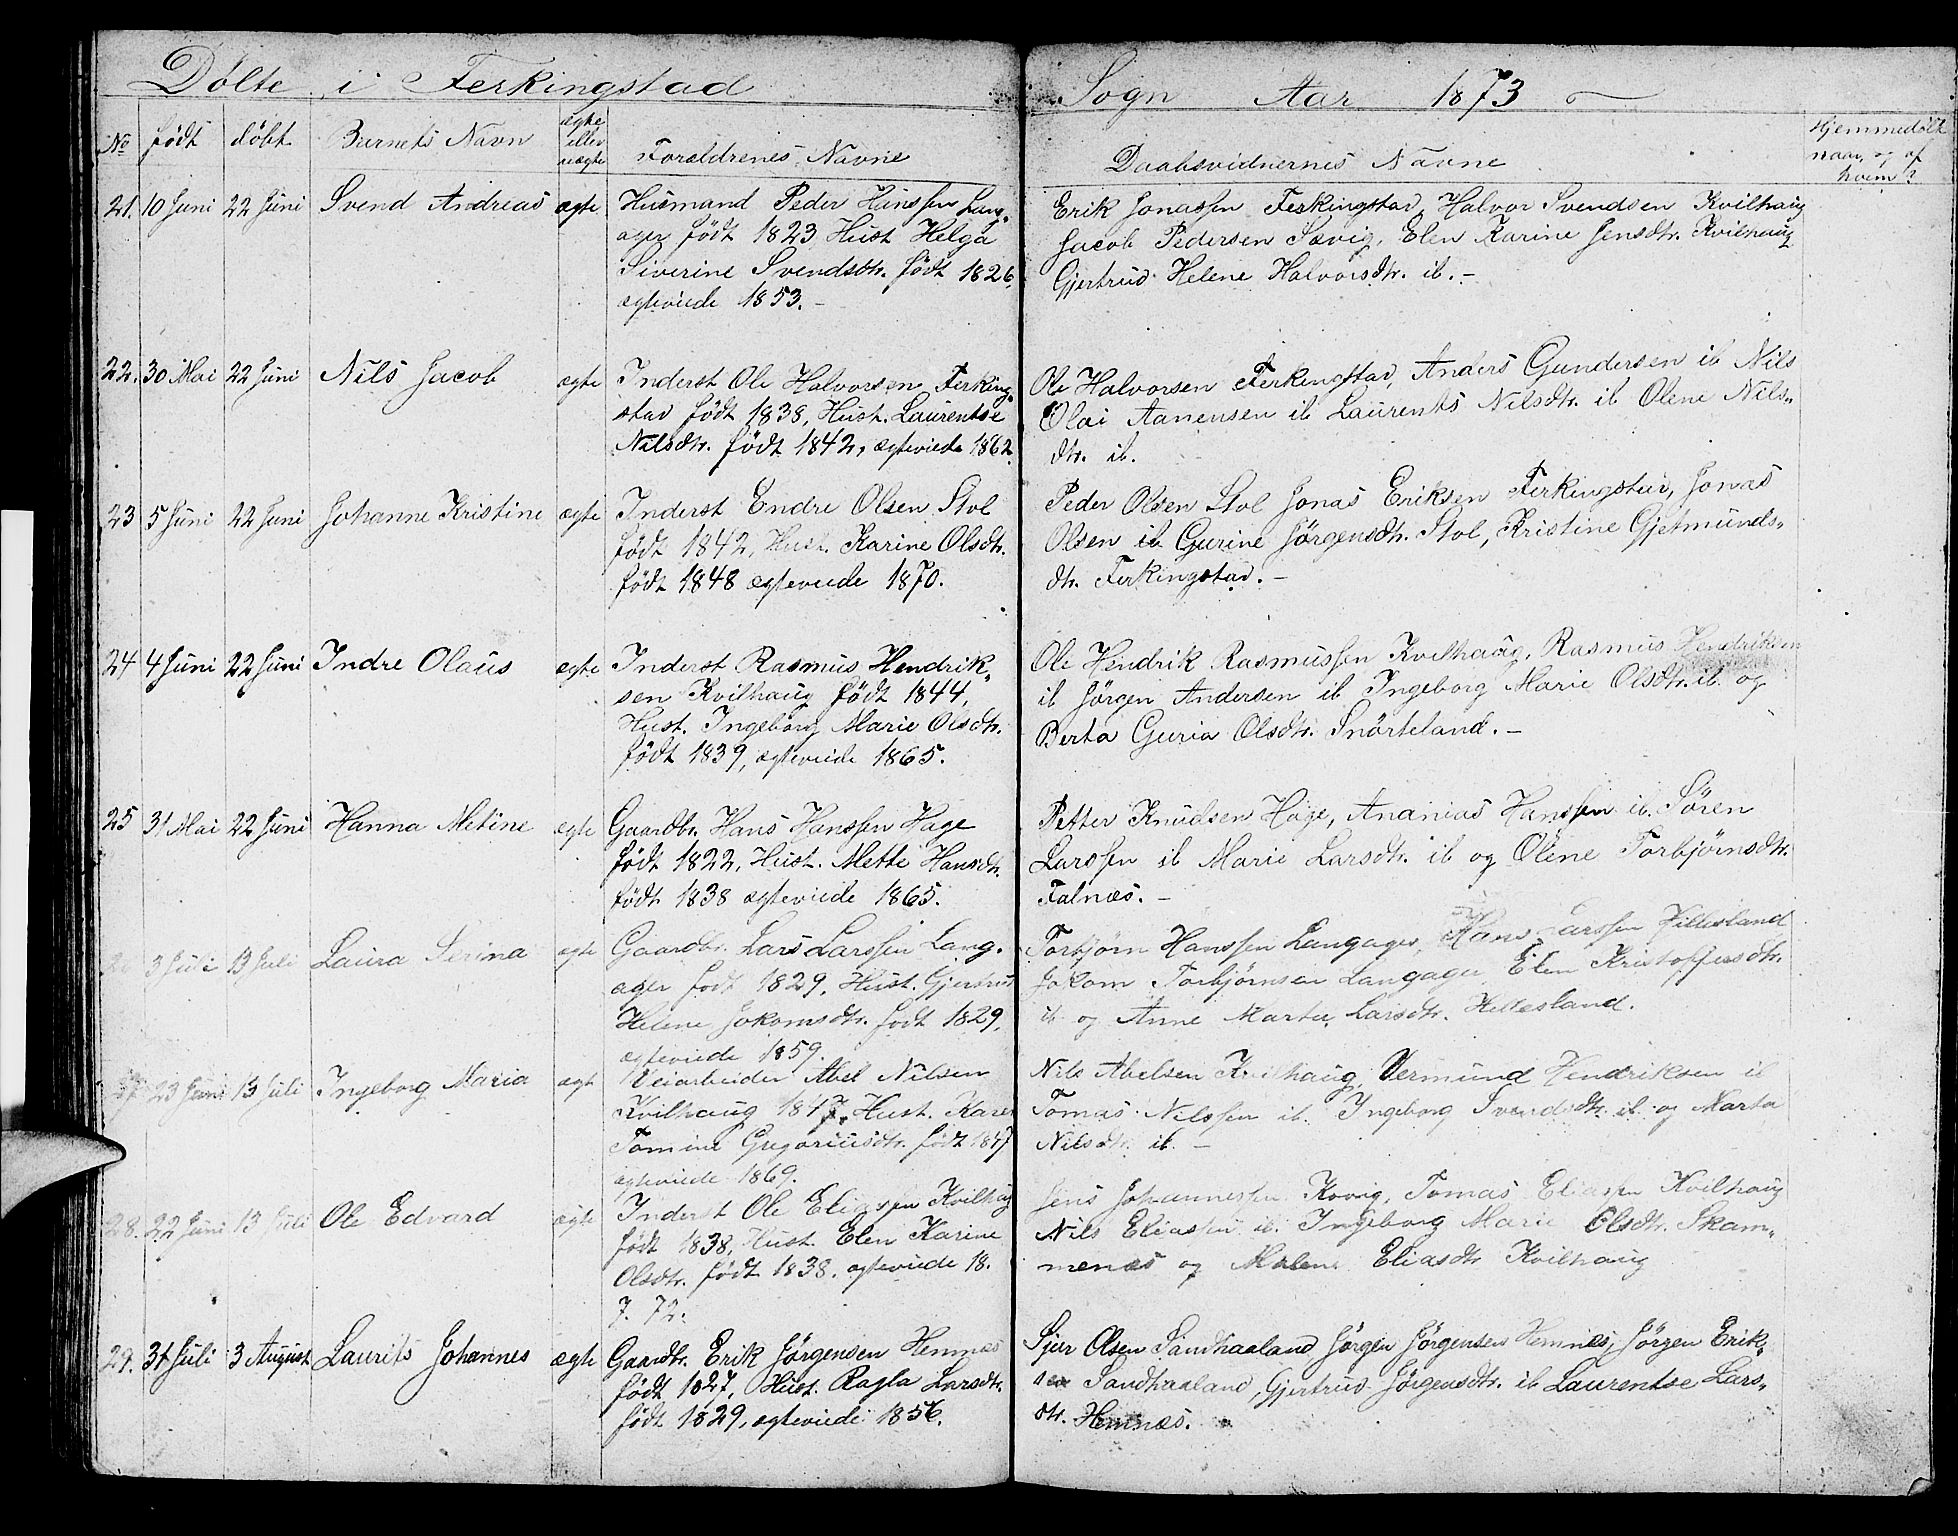 Døbte i Ferkingstad Sogn Aar 1873
No født døbt Barnets Navn ægte eller uægte Forældrenes Navne Daabsvidnernes Navne Hjemmedøbt naar og af hvem?
21. 10 Juni 22 Juni Svend Andreas ægte Husmand Peder Hanssen Lang-
ager født 1823 Hust Helga
Siverine Svendsdtr. født 1826
ægteviede 1853. -
Erik Jonassen Ferkingstad, Halvor Svendsen Kvilhaug
Jacob Pedersen Sævig, Elen Karine Jensdtr. Kvilhaug
Gjertrud Helene Halvorsdtr. ib. -
22. 30 Mai 22 Juni Nils Jacob ægte Inderst Ole Halvorsen Ferking-
stad født 1838, Hust. Laurentse
Nilsdtr. født 1842, ægteviede 1862.
Ole Halvorsen Ferkingstad, Anders Gundersen ib Nils
Olai Aanensen ib Laurents Nilsdtr. ib Olene Nils-
dtr. ib.
23 5 Juni 22 Juni Johanne Kristine ægte Inderst Endre Olsen Stol
født 1842, Hust. Karine Olsdtr.
født 1848 ægteviede 1870.
Peder Olsen Stol Jonas Eriksen Ferkingstad, Jonas
Olsen ib Gurine Jørgensdtr. Stol, Kristine Gjetmunds-
dtr. Ferkingstad. -
24 4 Juni 22 Juni Indre Olaus ægte Inderst Rasmus Hendrik-
sen Kvilhaug født 1844,
Hust. Ingeborg Marie Olsdtr.
født 1839, ægteviede 1865.
Ole Hendrik Rasmussen Kvilhaug, Rasmus Hendriksen
ib Jørgen Andersen ib Ingeborg Marie Olsdtr. ib og
Berta Guria Olsdtr. Snørteland. -
25 31 Mai 22 Juni Hanna Metine ægte Gaardbr. Hans Hanssen Hage
født 1822, Hust. Mette Hansdtr.
født 1838 ægteviede 1865.
Petter Knudsen Hage, Ananias Hanssen ib. Søren
Larssen ib Marie Larsdtr. ib og Olene Torbjørnsdtr.
Falnæs. -
26 3 Juli 13 Juli Laura Serina ægte Gaardbr. Lars Larssen Lang-
ager født 1829, Hust. Gjertrud
Helene Jokomsdtr. født 1829,
ægteviede 1859.
Torbjørn Hanssen Langager, Hans Larssen Hillesland
Jokom Torbjørnsen Langager Elen Kristoffersdtr.
ib og Anne Marta Larsdtr. Hillesland.
27 23 Juni 13 Juli Ingeborg Maria ægte Veiarbeider Abel Nilsen
Kvilhaug 1847, Hust. Karen
Tomine Gregoriusdtr. født 1847
ægteviede 1869.
Nils Abelsen Kvilhaug, Vermund Hendriksen ib
Tomas Nilssen ib. Ingeborg Svendsdtr. ib. og Marta
Nilsdtr. ib. -
28. 22 Juni 13 Juli Ole Edvard ægte Inderst Ole Eliassen Kvilhaug
født 1838, Hust. Elen Karine
Olsdtr. født 1838, ægteviede 18.
7. 72.
Jens Johannessen Kovig, Tomas Eliassen Kvilhaug
Nils Eliassen ib. Ingeborg Marie Olsdtr. Skam-
menæs og Malene Eliasdtr Kvilhaug
29. 31 Juli 3 August Laurits Johannes ægte Gaardbr. Erik Jørgensen Hemnæs
født 1827, Hust. Ragla Larsdtr.
født 1829, ægteviede 1856.
Sjur Olsen Sandhaaland, Jørgen Jørgensen Hemnæs, Jørgen Erik-
sen Sandhaaland, Gjertrud Jørgensdtr. ib Laurentse Lars-
dtr. Hemnæs.